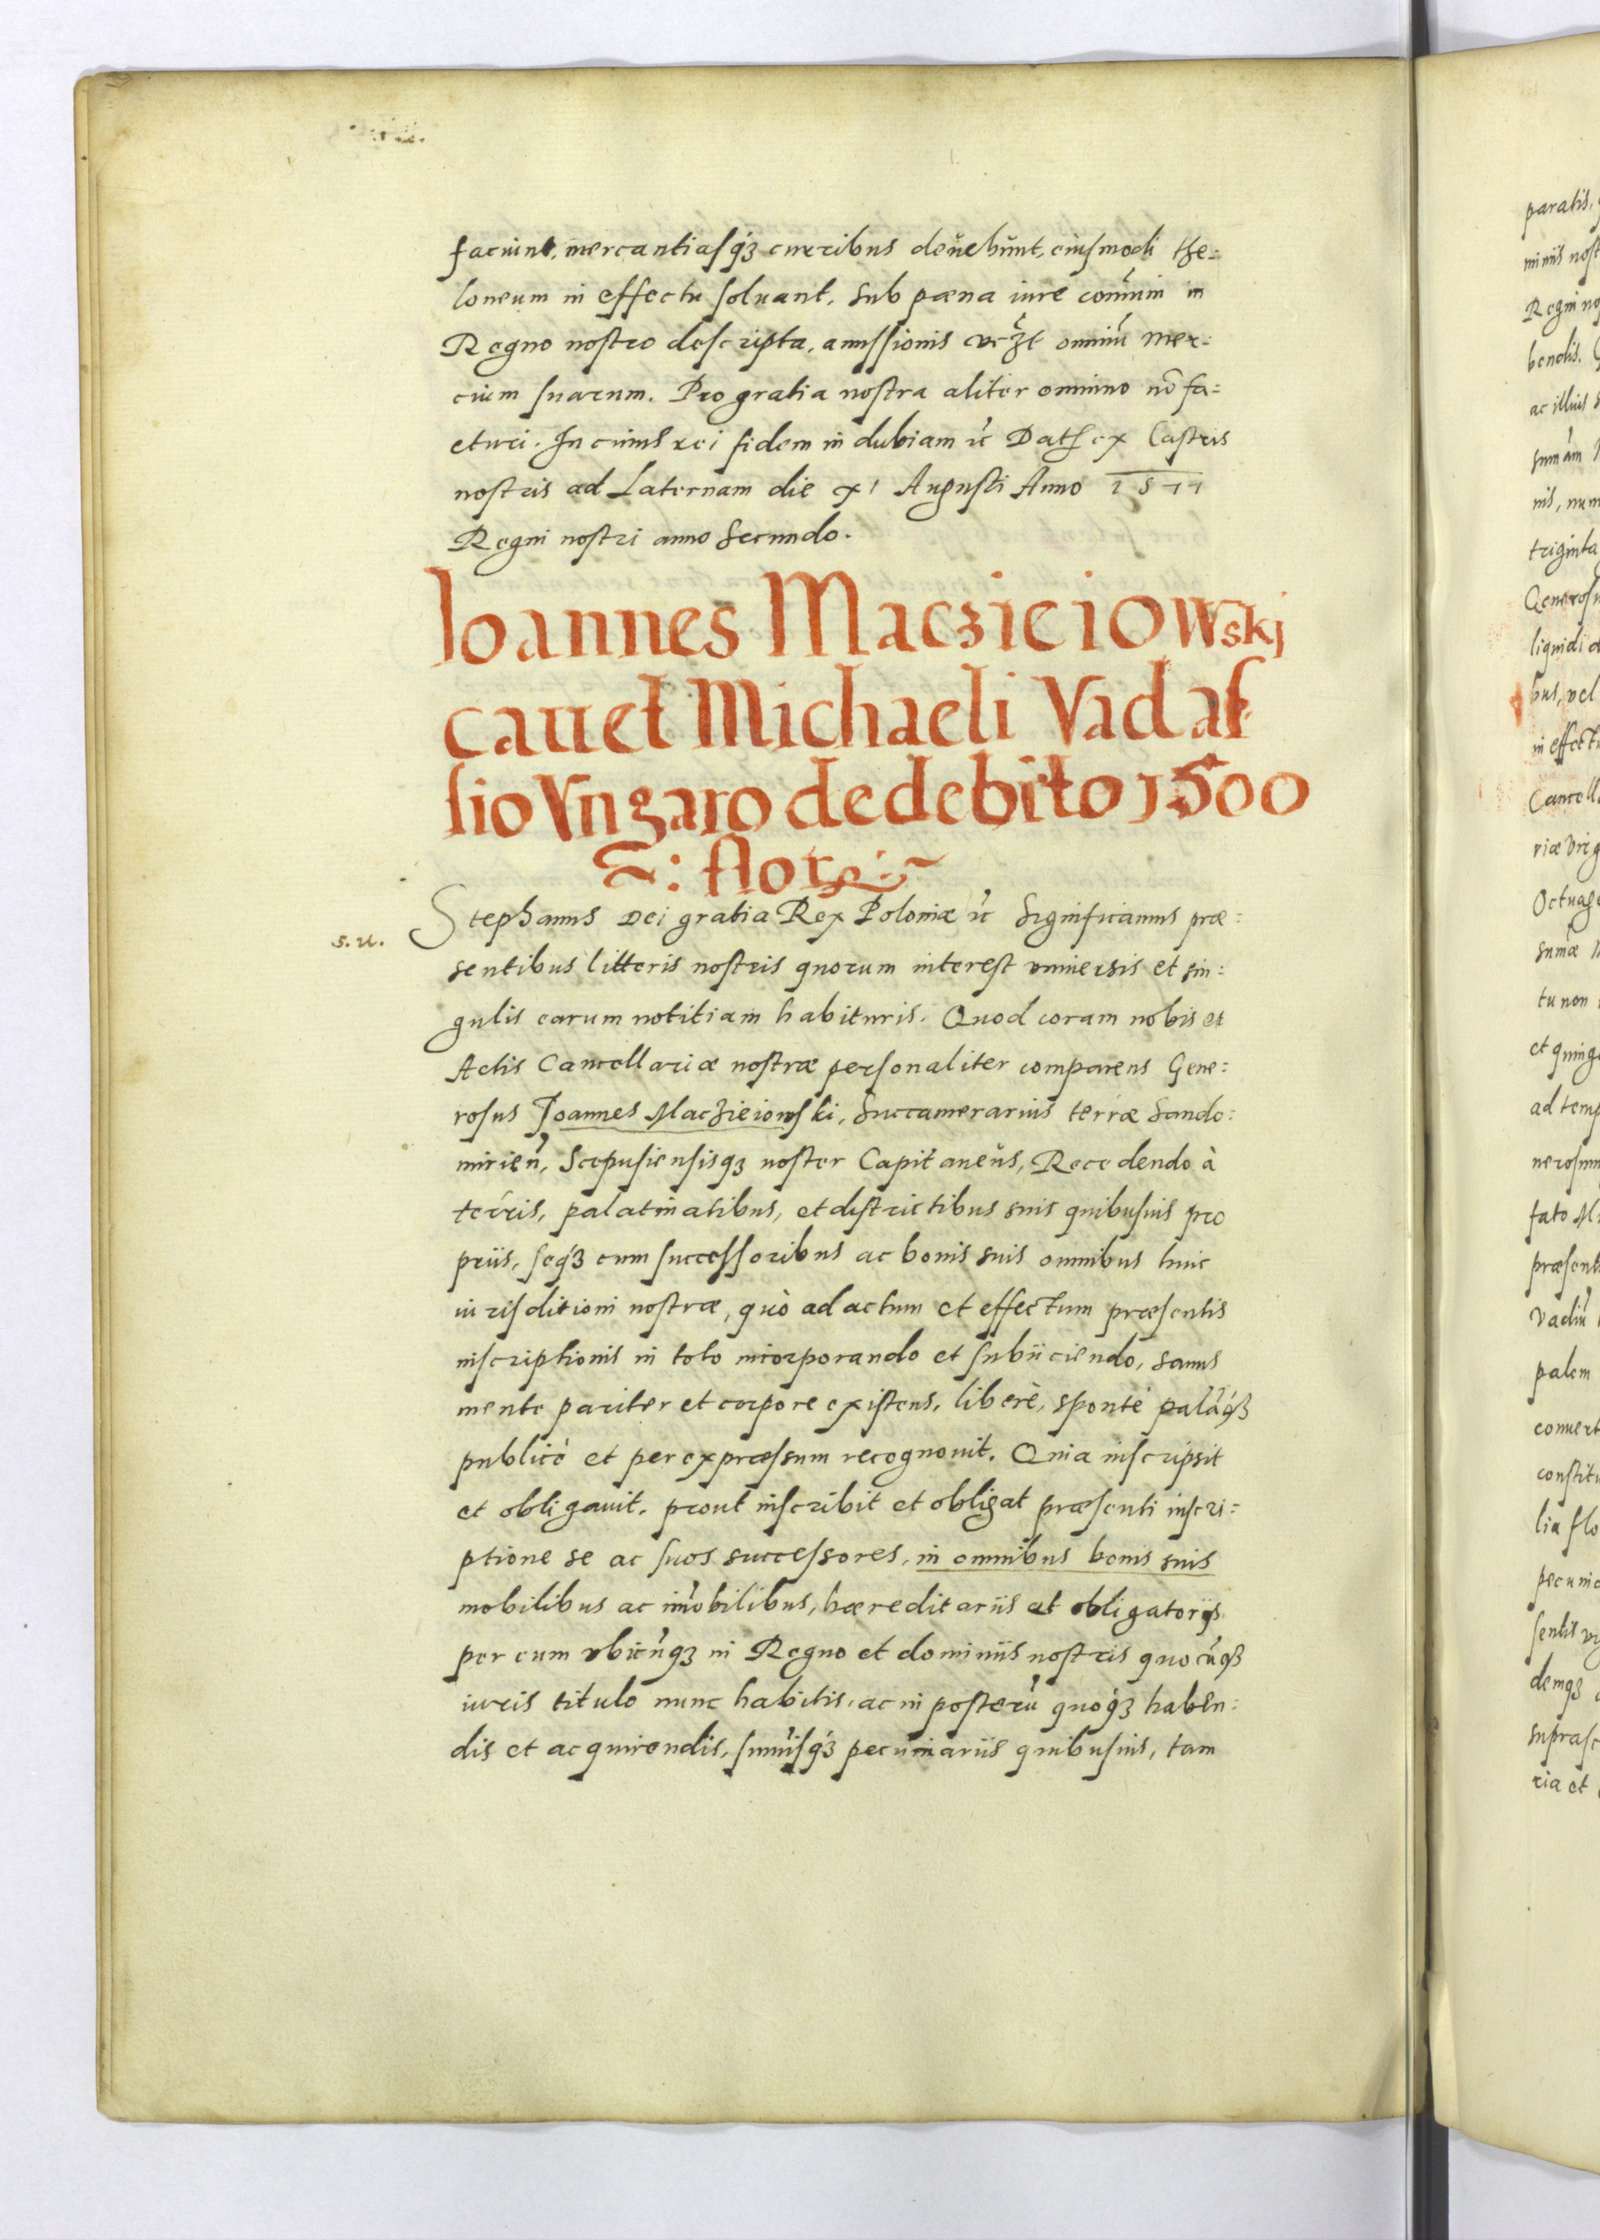 faciunt, mercantiasq́ʒ curribus deuehunt, eiusmodi the:
loneum in effectu soluant, sub pæna iure com̃uni in
Regno nostro descripta, amissionis vcʒt omniũ mer:
cium suarum. Pro gratia nostra aliter omnino nõ fa:
cturi. In cuius rei fidem in dubiam ꝛc Dat ex Castris
nostris ad Laternam die xi Augusti Anno 1577
Regni nostri anno secundo.
Ioannes Macʒieiowskj
cauet Michaeli Vadaſ
ſio Vngaro de debito 1500
~ : flor: ~
Stephanus Dei gratia Rex Poloniæ ꝛc Significamus præ:
s. u.
sentibus litteris nostris quorum interest vniuersis et sin:
gulis earum notitiam habituris. Quod coram nobis et
Actis Cancellariæ nostræ personaliter comparens Gene:
rosus Joannes Macʒieiowski, Succamerarius terræ Sando:
mirien̉, Scepusiensisqʒ noster Capitaneus, Recedendo à
terris, palatinatibus, et districtibus suis quibusuis pro
priis, seq́ʒ cum successoribus ac bonis suis omnibus huic
iurisditioni nostræ, quò ad actum et effectum præsentis
inscriptionis in toto incorporando et subiiciendo, sanus
mente pariter et corpore existens, liberè, spontè palãq́ʒ
publicè et per expræssum recognouit. Quia inscripsit
et obligauit, prout inscribit et obligat præsenti inscri:
ptione se ac suos successores, in omnibus bonis suis
mobilibus ac im̃obilibus, hæreditariis et obligatorijs
per eum vbicũqʒ in Regno et dominiis nostris quocũqʒ
iuris titulo nunc habitis, ac in posterũ quoq́ʒ haben:
dis et acquirendis, sum̃isq́ʒ pecuniariis quibusuis, tam
paratis,
miniis nost
Regni no
bendis.
ac illius
sum̃am
nis, num
triginta
Generosu
liquidi
bus, vel
in effectu
Cancell
riæ
Octuage
sum̃æ
tu non
et quinge
ad temp
nerosum
fato
præsent
Vadiũ
palem
conuert
constitu
lia flo
pecunia
sentis
demqʒ
suprasc
ria et